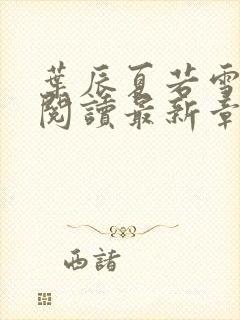 葉辰夏若雪
閱讀最新章
西諳